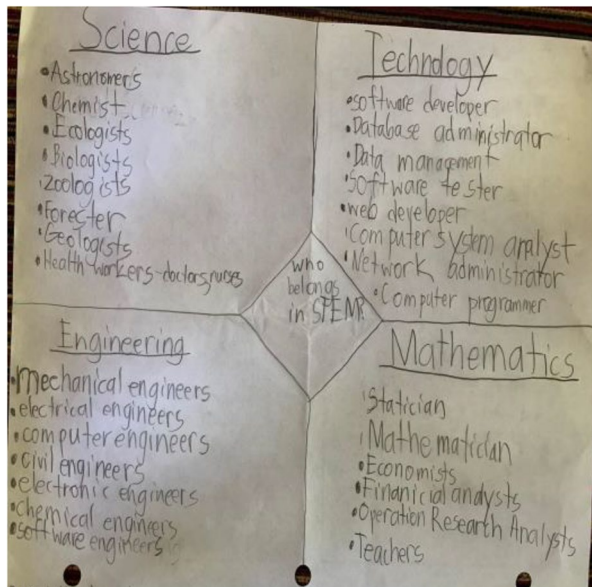 Science
•Astronomers
•Chemist
•Ecologists
•Biologists
•Zoologists
•Forester
•Geologists
•Health workers-doctors,nurses
Technology
•software developer
•Database administrator
•Data management
•Software tester
•web developer
•Computer system analyst
•Network administrator
•Computer programmer
who
belongs
in STEM?
Engineering
•mechanical engineers
•electrical engineers
•computer engineers
•civil engineers
•electronic engineers
•chemical engineers
•software engineers
Mathematics
•Statician
•Mathematician
•Economists
•Finanicial analysts
•Operation Research Analysts
•Teachers